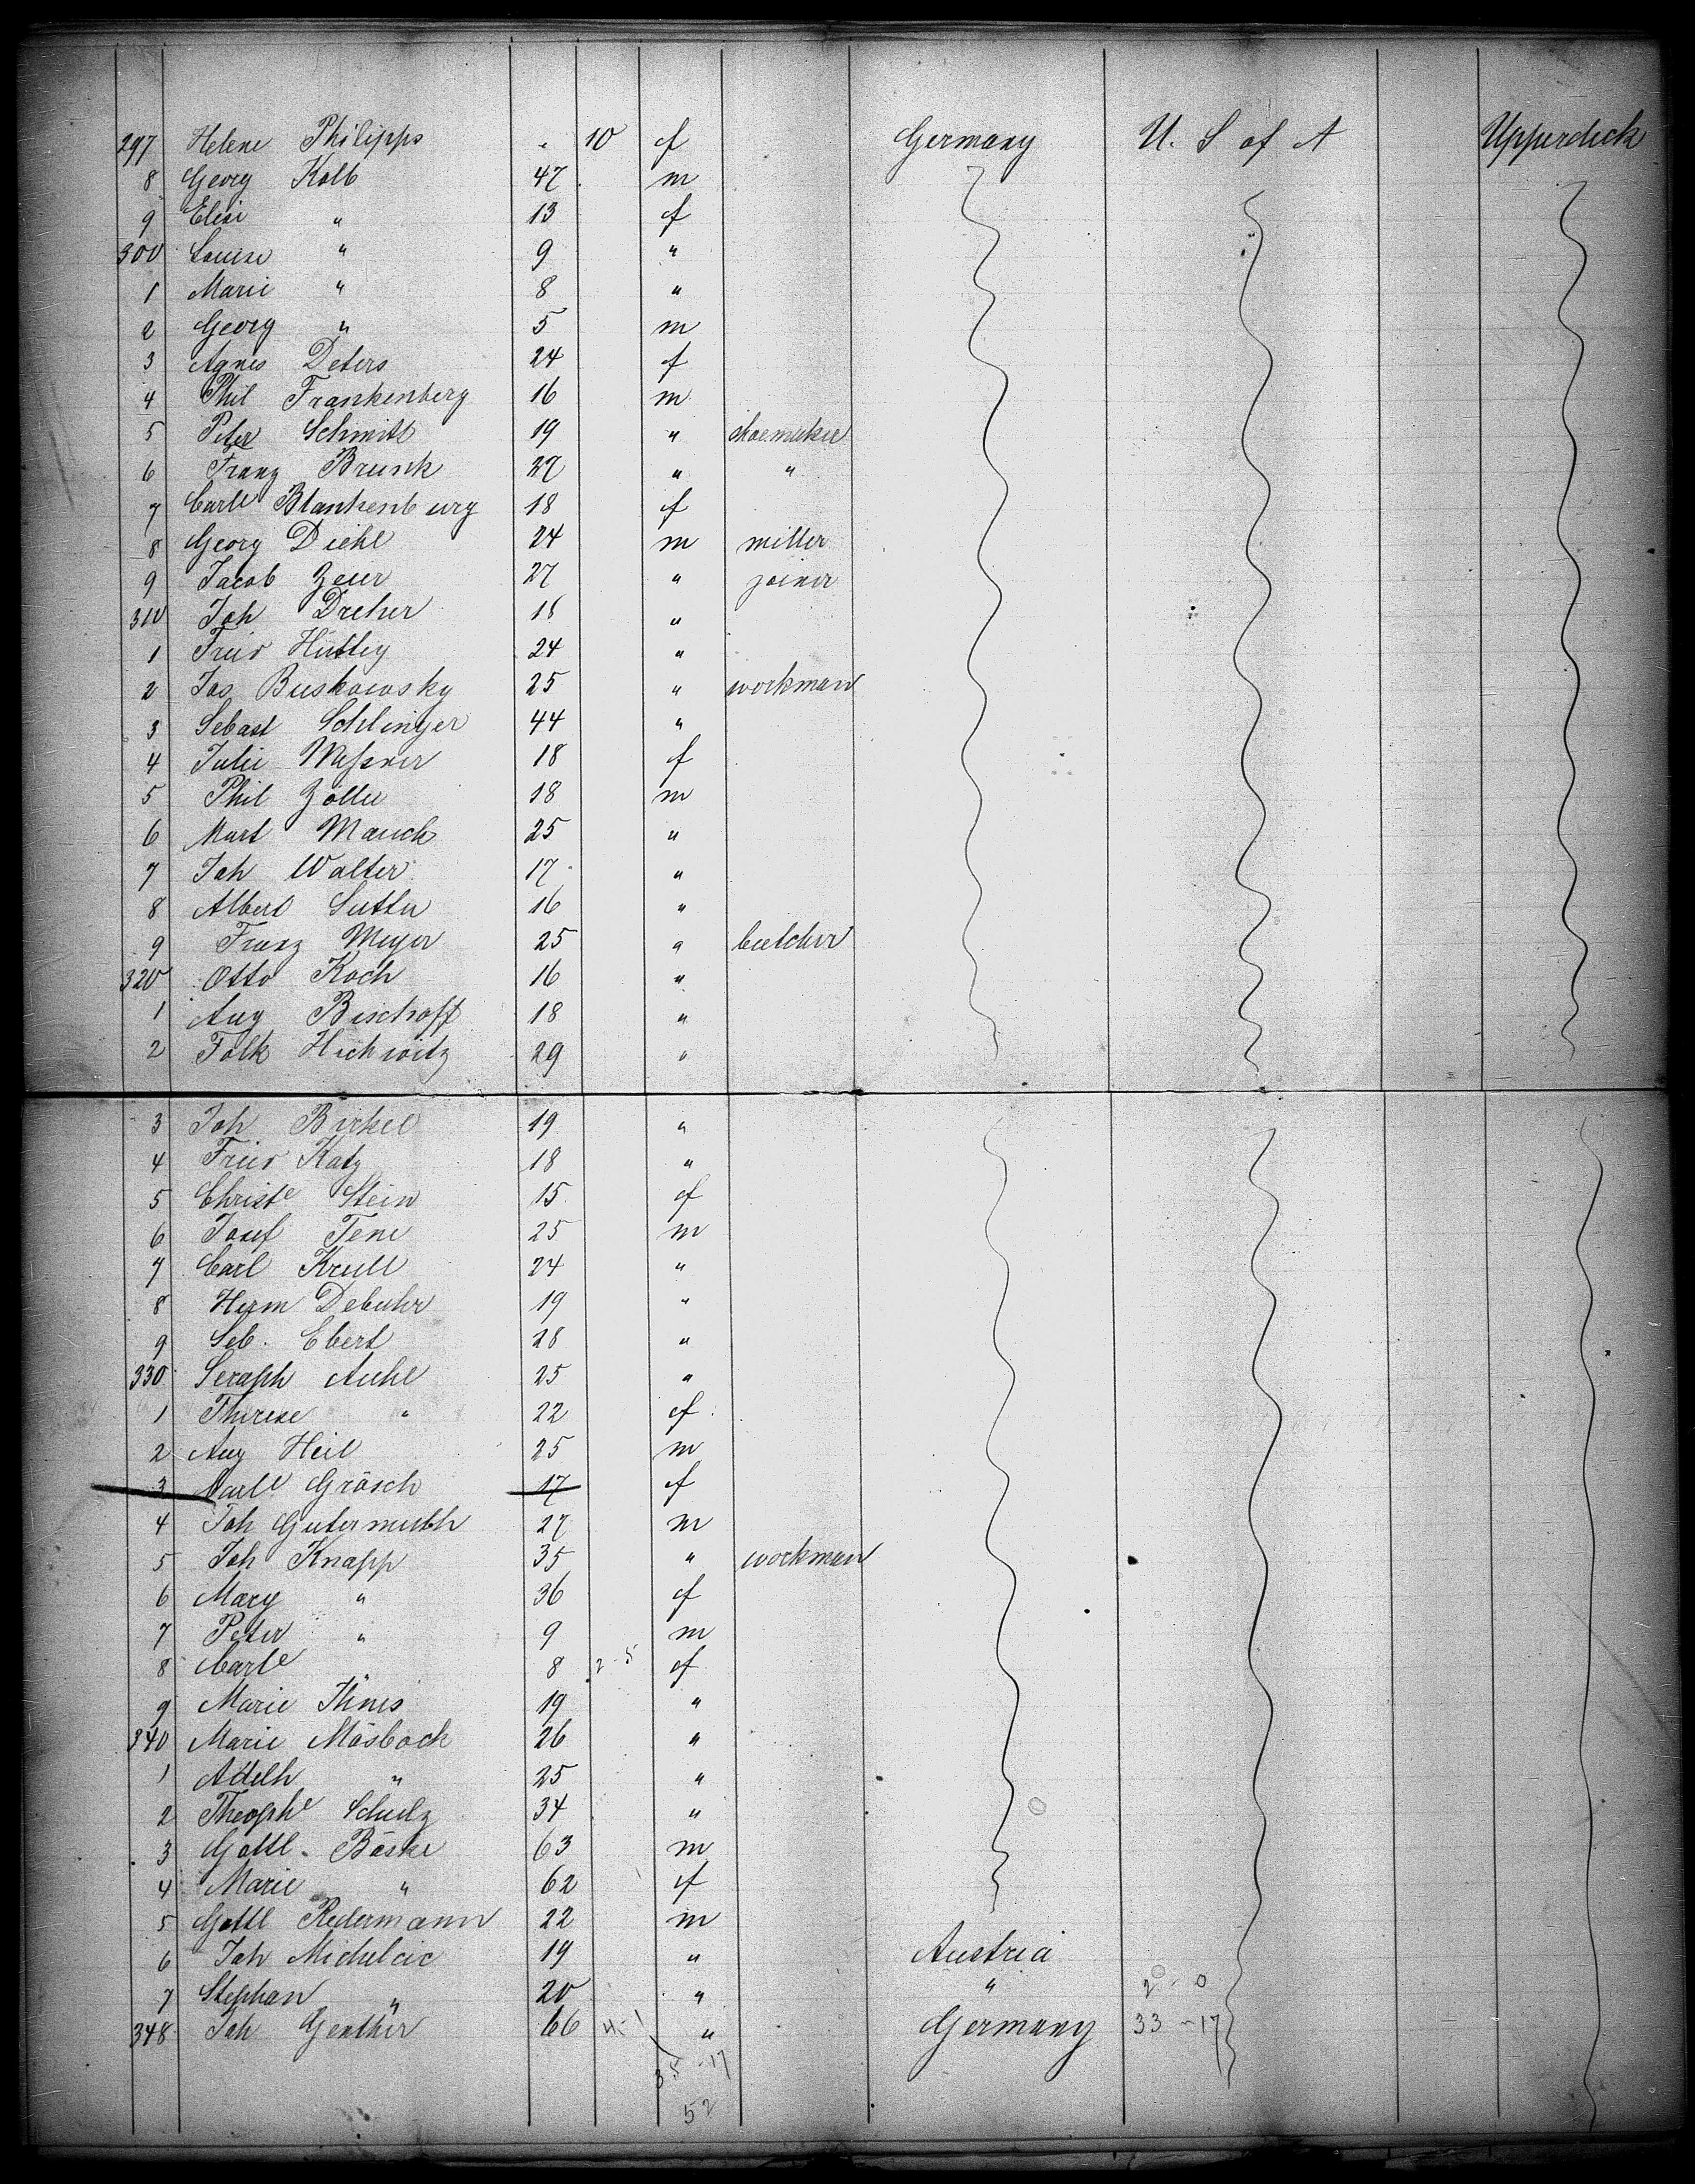 297 Helene Philipps " 10 f Germany U. S of A Upperdeck
8 Georg Kolb 47 m
9 Elise " 13 f
300 Louise " 9 "
1 Marie " 8 "
2 Georg " 5 m
3 Agnes Deters 24 f
4 Phil Frankenberg 16 m
5 Peter Schmitt 19 " shoemaker
6 Franz Brunk 27 " "
7 Carle Blankenburg 18 f
8 Georg Diehl 24 m miller
9 Jacob Zeur 27 " joiner
310 Joh Dreher 18 "
1 Fried Hüttig 24 "
2 Jos Buskowsky 25 " workman
3 Sebast Schlinger 44 "
4 Julie Meßner 18 f
5 Phil Zöller 18 m
6 Mart Mauch 25 "
7 Joh Walter 17 "
8 Albert Sutter 16 "
9 Franz Meyer 25 " butcher
320 Otto Koch 16 "
1 Aug Bischoff 18 "
2 Falk Hichwitz 29 "
3 Joh Birkel 19 "
4 Fried Katz 18 "
5 Christe Stein 15 f
6 Josef Tene 25 m
7 Carl Krull 24 "
8 Herm Debuhr 19 "
9 Seb. Ebert 28 "
330 Seraph Aichl 25 "
1 Therese " 22 f
2 Aug Heil 25 m
3 Carle Grösch 17 f
4 Joh Gutermuth 27 m
5 Joh Knapp 35 " workman
6 Mary " 36 f
7 Peter " 9 m
8 Carle 8 2-5 f
9 Marie 19 "
340 Marie Mösbock 26 "
1 Adelh " 25 "
2 Theophe Schulz 34 "
3 Gottl. Böske 63 m
4 Marie " 62 f
5 Gottl Redermann 22 m
6 Joh Midulcic 19 " Austria
7 Stephan " 20 " " 2 - 0
348 Joh Genther 66 4-1 " Germany 33 - 17
35 - 17
52